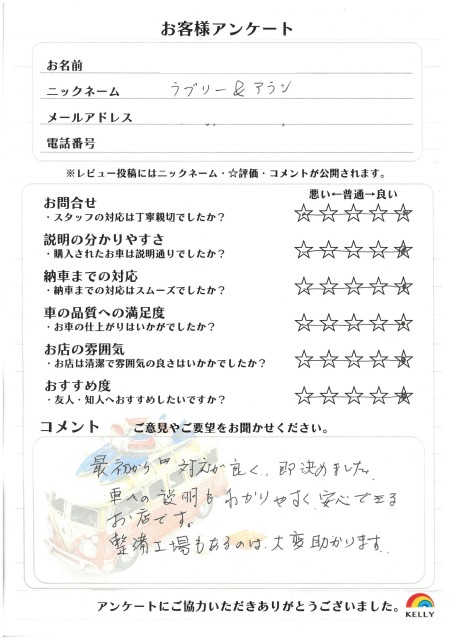 お客様アンケート
お名前
ニックネーム ラブリー&アラン
メールアドレス
電話番号
※レビュー投稿にはニックネーム・☆評価・コメントが公開されます。
悪い←普通→良い
お問合せ
・スタッフの対応は丁寧親切でしたか? ☆☆☆☆☆
説明の分かりやすさ
・購入されたお車は説明通りでしたか? ☆☆☆☆☆
納車までの対応
・納車までの対応はスムーズでしたか? ☆☆☆☆☆
車の品質への満足度
・お車の仕上がりはいかがでしたか? ☆☆☆☆☆
お店の雰囲気
・お店は清潔で雰囲気の良さはいかかでしたか? ☆☆☆☆☆
おすすめ度
・友人・知人へおすすめしたいですか? ☆☆☆☆☆
コメント ご意見やご要望をお聞かせください。
最初から 対応が良く、即決めました。
車の説明もわかりやすく、安心できる
お店です。
整備工場もあるのは、大変助かります。
アンケートにご協力いただきありがとうございました。
KELLY